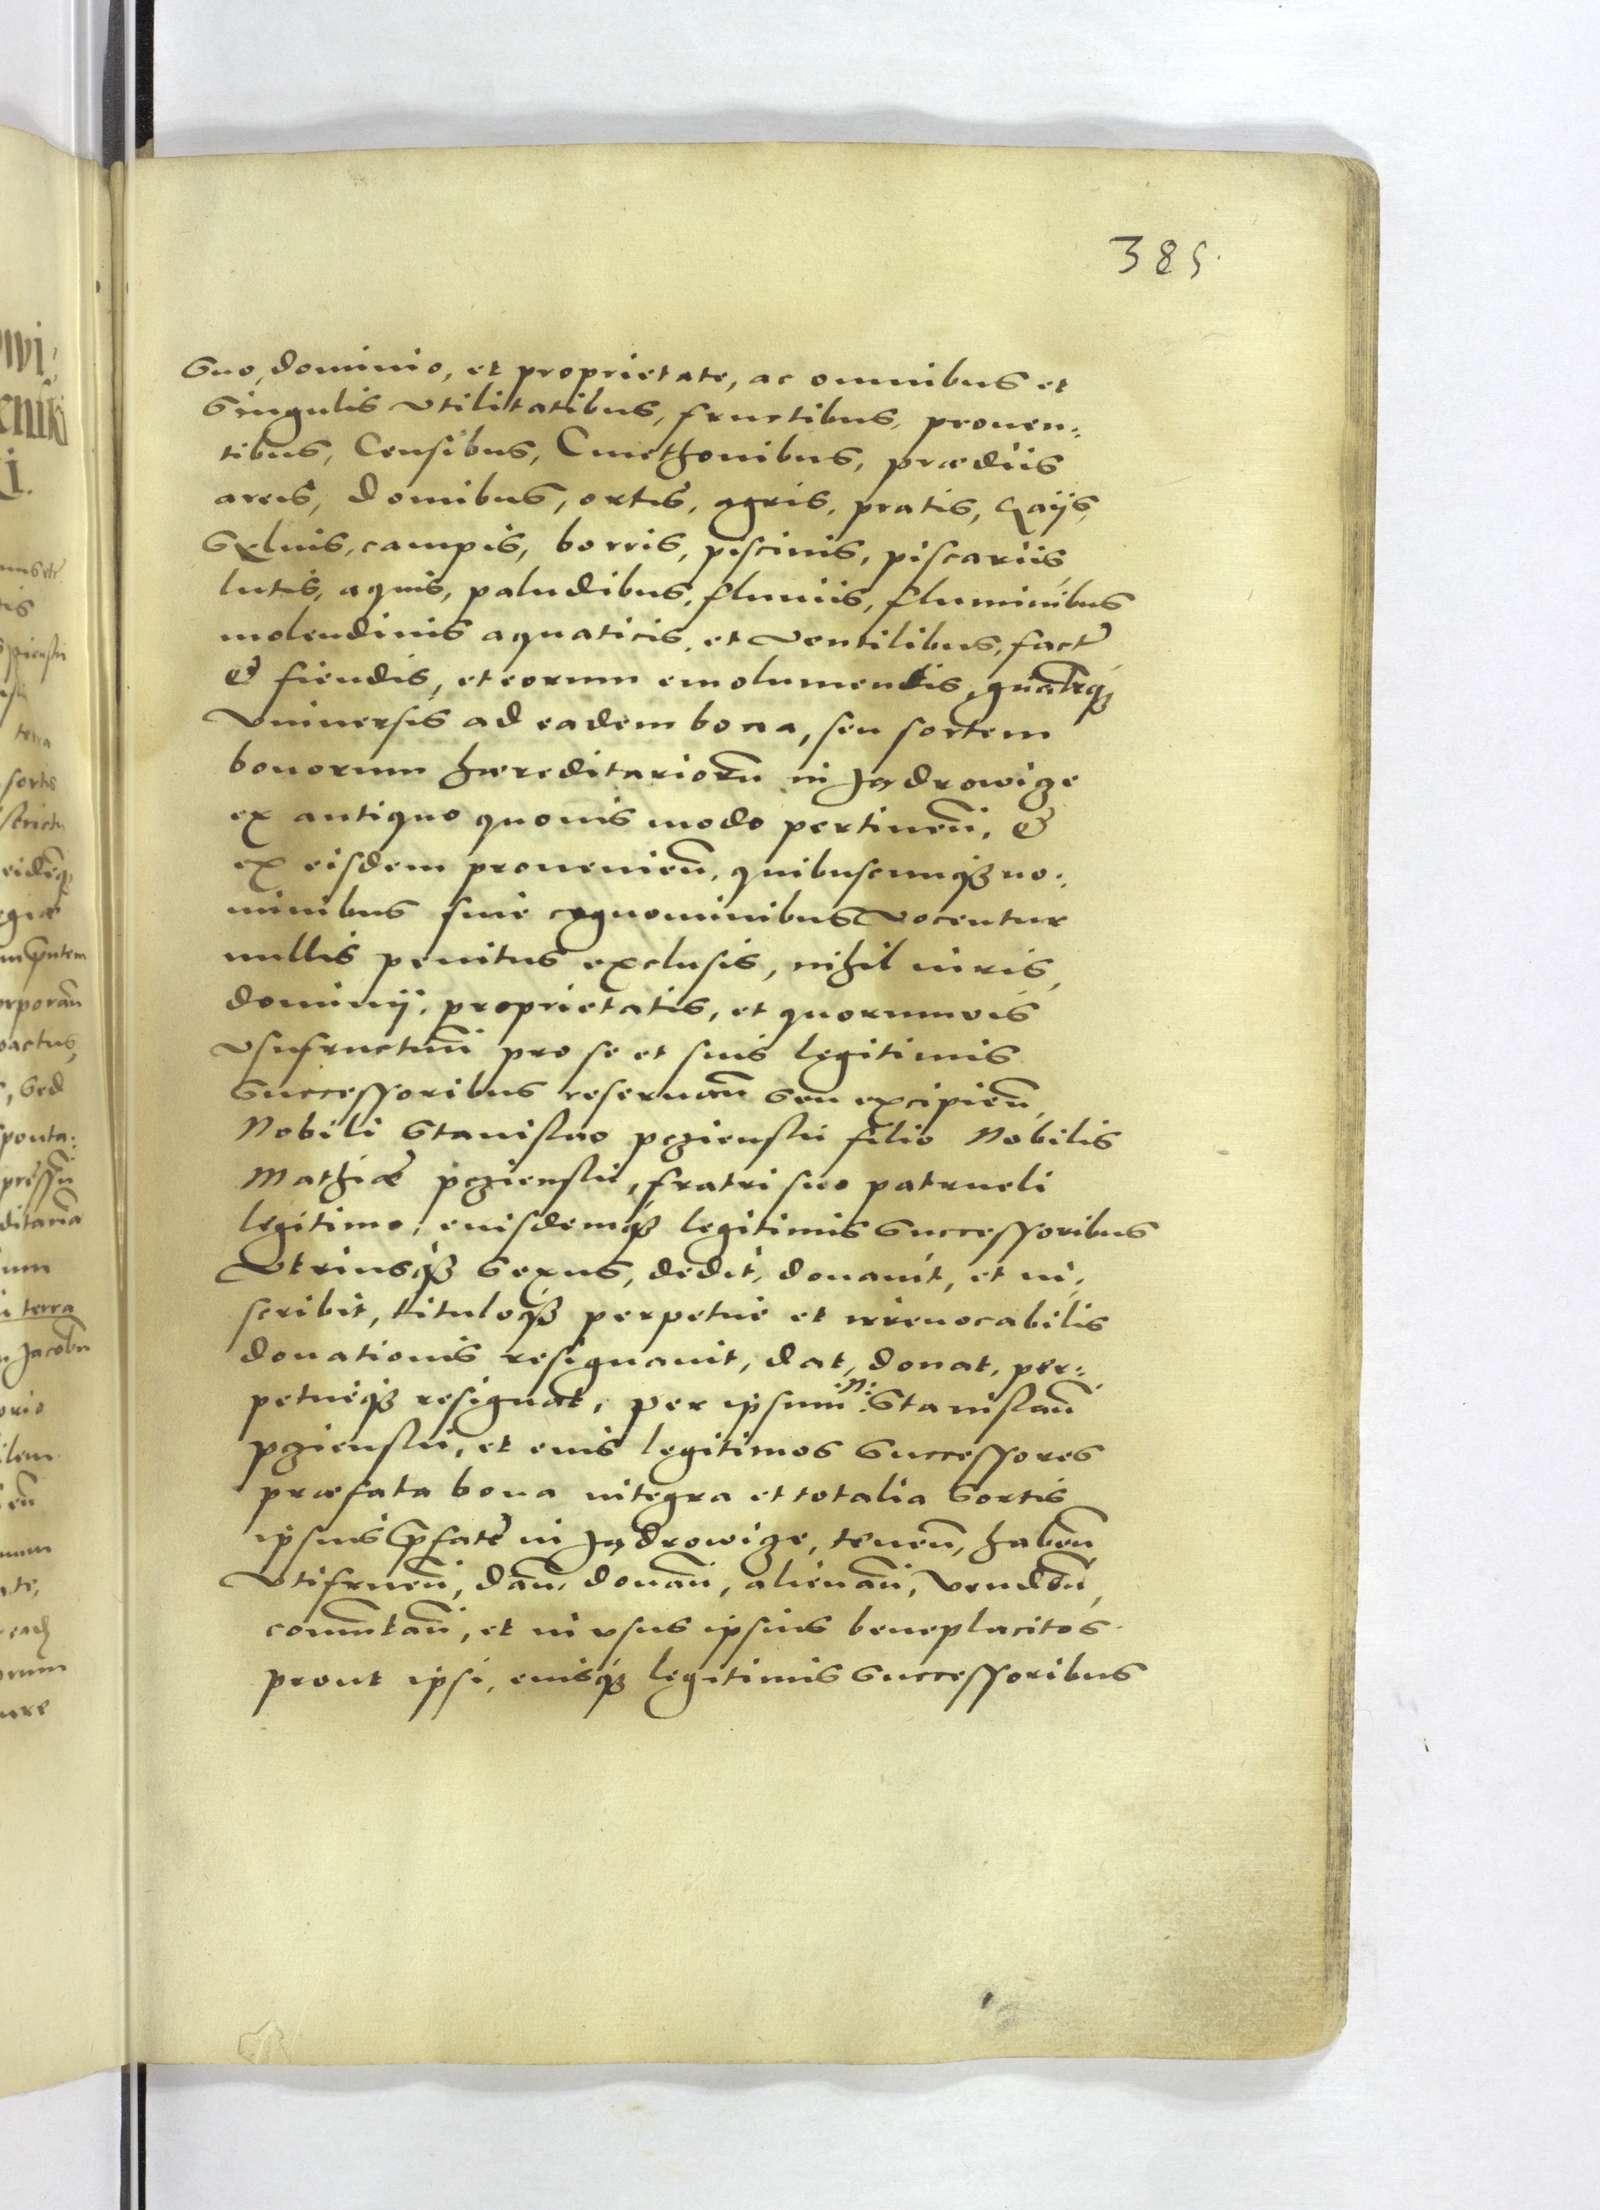 385.
suo, dominio, et proprietate, ac omnibus et
singulis vtilitatibus, fructibus, prouen:
tibus, Censibus, Cmethonibus, prædiis
areis, domibus, ortis, agris, pratis, gaijs,
syluis, campis, borris, piscinis, piscariis,
lutis, aquis, paludibus, fluuiis, fluminibus
molendinis aquaticis, et ventilibus, fact
& fiendis, et eorum emolumendis,
vniuersis ad eadem bona, seu sortem
bonorum hæreditarioru in Jędrowize
ex antiquo quouis modo pertinen, &
ex eisdem prouenien, quibuscunq no:
minibus siue cognominibus vocentur
nullis penitus exclusis, nihil iuris,
dominij, proprietatis, et quorumuis
vsufructuum pro se et suis legitimis
successoribus reseruan seu excipien,
Nobili Stanislao pczienski filio Nobilis
Mathiæ pczienski, fratri suo patrueli
legitimo, eiusdemq legitimis successoribus
Vtriusq sexus, dedit, donauit, et in,
scribit, tituloq perpetue et irreuocabilis
donationis resignauit, dat, donat, per:
petueq resignat, per ipsum N: Stanislau
pczienski, et eius legitimos successores
præfata bona integra et totalia sortis
ipsius pfate in Jędrowize, tenen, haben
vtifruen, dan, donan, alienan, venden,
commtan, et in vsus ipsius beneplacitos
prout ipsi, eiusq legitimis successoribus